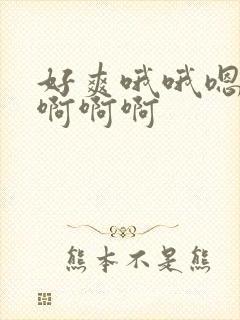 好爽哦哦嗯
啊啊啊
熊本不是熊